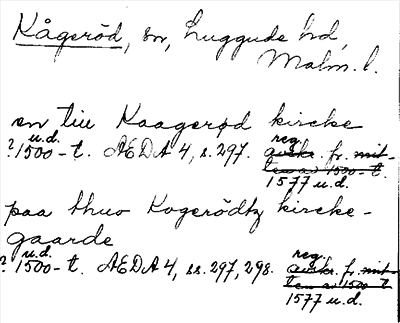 Kågeröd, sn, Luggude hd,
Malm. l.
en till Kaagerød kircke
? u.d. 1500-t. AEDA 4, s. 297. avskr. reg. fr. mit-
ten av 1500-t.
1577 u.d.
paa thuo Kogerödtz kircke-
gaarde
? u.d. 1500-t. AEDA 4, ss. 297, 298. avskr. reg. f. mit-
ten av 1500-t
1577 u.d.